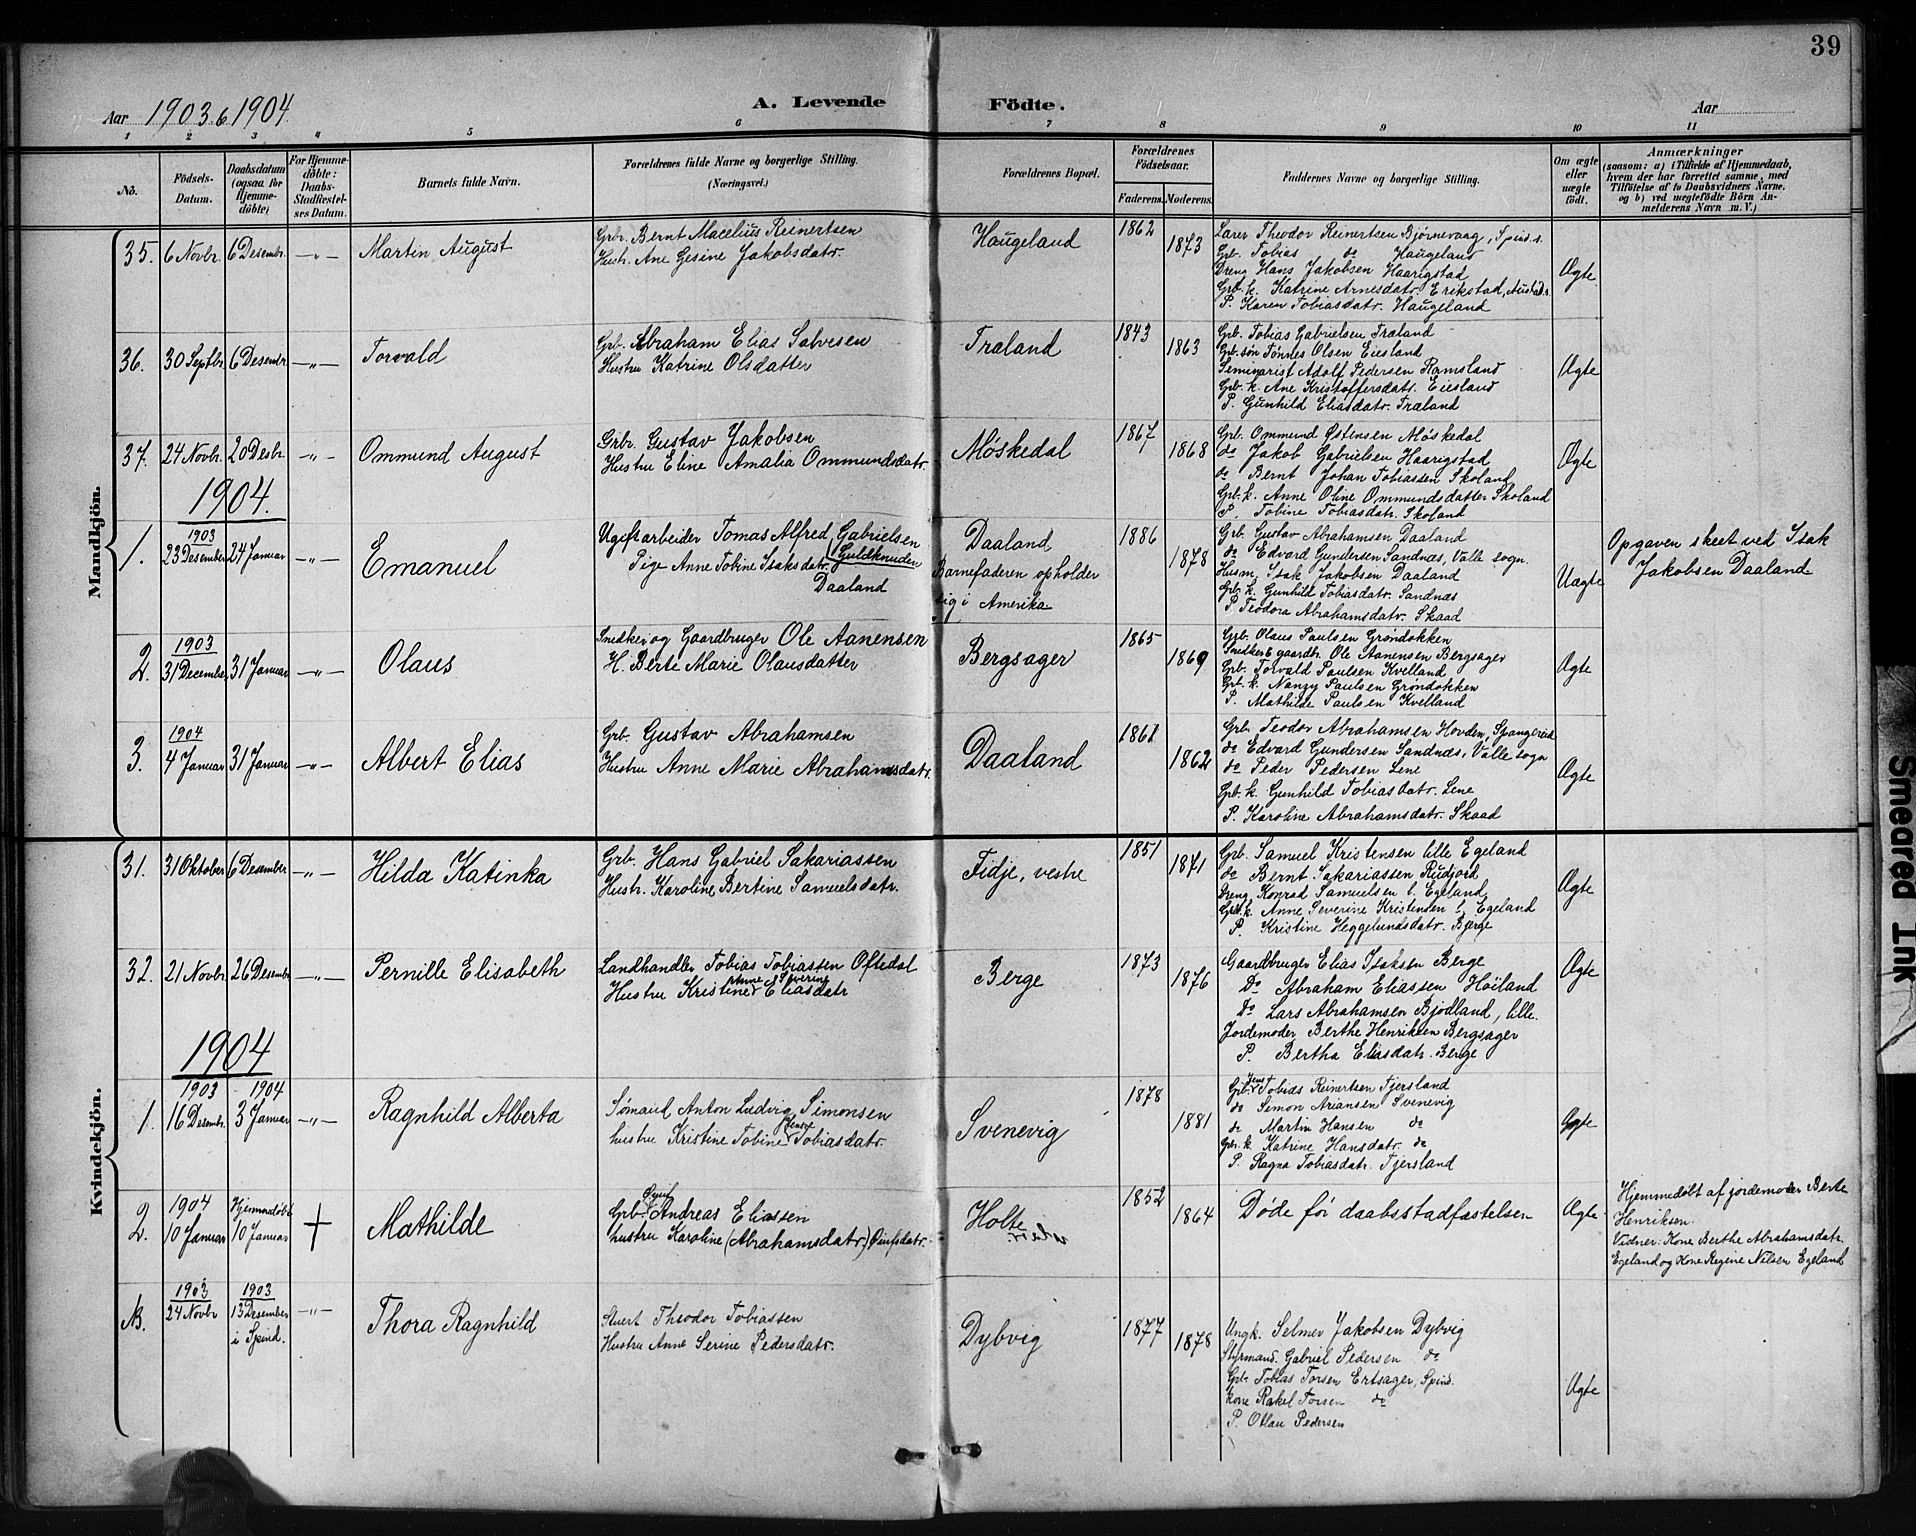 39
Aar 1903 & 1904
A. Levende Födte.
Aar
1 2 3 4 5 6 7 8 9 10 11
No.
Födsels-Datum.
Daabsdatum (ogsaa for Hjemme-döbte)
For Hjemme-döbte: Daabs-Stadfæstel-ses Datum.
Barnets fulde Navn.
Forældrenes fulde Navne og borgerlige Stilling. (Næringsvei.)
Forældrenes Bopæl.
Forældrenes Födselsaar.
Faderens. Moderens.
Faddernes Navne og borgerlige Stilling.
Om ægte eller uægte födt.
Anmærkninger
(saasom: a) i Tilfælde af Hjemmedaab,
hvem der har forrettet samme, med
Tilföielse af to Daabsvidners Navne.
og b) ved uægtefödte Börn An-
melderens Navn m. V.)
Mandkjön.
35. 6 Novbr. 6 Desembr. -"- Martin August
Grb. Bernt Macelius Reinertsen
Hustr. Ane Gesine Jakobsdatr.
Haugeland 1862 1873
Larer Theodor Reinertsen Bjørnevaag, Spind s.
Grb. Tobias do Haugeland
Dreng Hans Jakobsen Haarigstad
Grb. k. Katrine Arnesdatr. Erikstad, Austad s.
P. Karen Tobiasdatr. Haugeland
Ægte
36. 30 Septbr. 6 Desembr -"- Torvald
Grb. Abraham Elias Salvesen
Hustru Katrine Olsdatter
Traland 1843 1863
Grb. Tobias Gabrielsen Traland
Grb. søn Tønnes Olsen Eiesland
Seminarist Adolf Pedersen Ramsland
Grb. k. Ane Kristoffersdatr. Eiesland
P. Gunhild Eliasdatr. Traland
Ægte
37. 24 Novbr. 20 Desbr. -"- Ommund August
Grbr. Gustav Jakobsen
Hustru Eline Amalia Ommundsdatr.
Møskedal 1867 1868
Grb. Ommund Østensen Møskedal
do Jakob Gabrielsen Haarigstad
do Bernt Johan Tobiassen Skoland
Grb. k. Anne Oline Ommundsdatter Skoland
P. Tobine Tobiasdatr. Skoland
Ægte
1904.
1. 1903 23 Desember 24 Januar -"- Emanuel
Ugift arbeider Tomas Alfred Gabrielsen Guldknuden
Pige Anne Tobine Isaksdatr. Daaland
Daaland
Barnefaderen opholder
sig i Amerika
1886 1878
Grb. Gustav Abrahamsen Daaland
do Edvard Gundersen Sandnæs, Valle sogn.
Husm. Isak Jakobsen Daaland
Grb. k. Gunhild Tobiasdatr. Sandnæs
P. Teodora Abrahamsdatr. Skaad
Uægte
Opgaven skeet ved Isak
Jakobsen Daaland
2. 1903 31 December 31 Januar -"- Olaus
Snedker og Gaardbruger Ole Aanensen
H. Berte Marie Olausdatter
Bergsager 1865 1869
Grb. Olaus Paulsen Grøndokken
Snedker & gaardbr. Ole Aanensen Bergsager
Grb. Torvald Paulsen Kvelland
Grb. k. Nanzy Paulsen Grøndokken
P. Mathilde Paulsen Kvelland
Ægte
3. 1904 4 Januar 31 Januar -"- Albert Elias
Grb. Gustav Abrahamsen
Hustru Anne Marie Abrahamsdatr.
Daaland 1861 1862
Grb. Teodor Abrahamsen Hovden, Spangereid
do Edvard Gundersen Sandnæs, Valle sogn
do Peder Pedersen Lene
Grb. k. Gunhild Tobiasdatr. Lene
P. Karoline Abrahamsdatr. Skaad
Ægte
Kvindekjön.
31. 31 Oktober 6 Desember -"- Hilda Katinka
Grb. Hans Gabriel Sakariassen
Hustr. Karoline Bertine Samuelsdatr.
Fidje, vestre 1851 1871
Grb. Samuel Kristensen lille Egeland
do Bernt Sakariassen Rudjord
Dreng Konrad Samuelsen l. Egeland
Grb. k. Anne Severine Kristensen l. Egeland
P. Kristine Heggelundsdatr. Bjerge
Ægte
32. 21 Novbr. 26 Desembr -"- Pernille Elisabeth
Landhandler Tobias Tobiassen Oftedal
Hustru Kristine Anne Severine Eliasdatr
Berge 1873 1876
Gaardbruger Elias Isaksen Berge
Do Abraham Eliassen Høiland
Do Lars Abrahamsen Bjødland, lille.
Jordemoder Berthe Henriksen Bergsager
P. Bertha Eliasdatr. Berge
Ægte
1904
1. 1903 16 Desembr. 1904 3 Januar -"- Ragnhild Alberta
Sømand Anton Ludvig Simonsen
hustru Kristine Tobine Tobiasdatr.
Svenevig 1878 1881
Grb. Jens Tobias Reinertsen Tjersland
do Simon Ariansen Svenevig
do Martin Hansen do
Grb. k. Katrine Hansdatr. do
P. Ragna Tobiasdatr. Tjersland
Ægte
2. 1904 10 Januar Hjemmedøbt 10 Januar + Mathilde
Grb. Andreas Eliassen
hustru Karoline (Abrahamsdatr) Øiufsdatr.
Holte 1852 1864
Døde før daabsstadfæstelsen
Ægte
Hjemmedøbt af jordemoder Berte
Henriksen.
Vidner: Kone Berthe Abrahamsdatr.
Egeland og Kone Regine Nilsen Egeland
N.B. 1903 24 Novbr 1903 13 Desember i Spind. -"- Thora Ragnhild
Stuert Theodor Tobiassen
Hustru Anne Serine Pedersdatr.
Dybvig 1877 1878
Ungk. Selmer Jakobsen Dybvig
Styrmand Gabriel Pedersen do
Grb. Tobias Torsen Ertsager, Spind.
kone Rakel Torsen do
P. Otlau Pedersen
Ægte
Smeared Ink